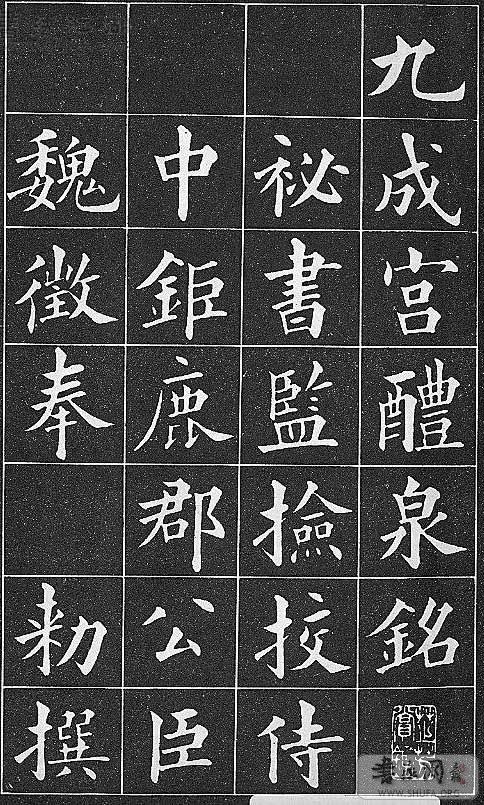 九成宫醴泉銘
祕書監撿挍侍
中鉅鹿郡公臣
魏徵奉勑撰
WWW.SHUFA.ORG